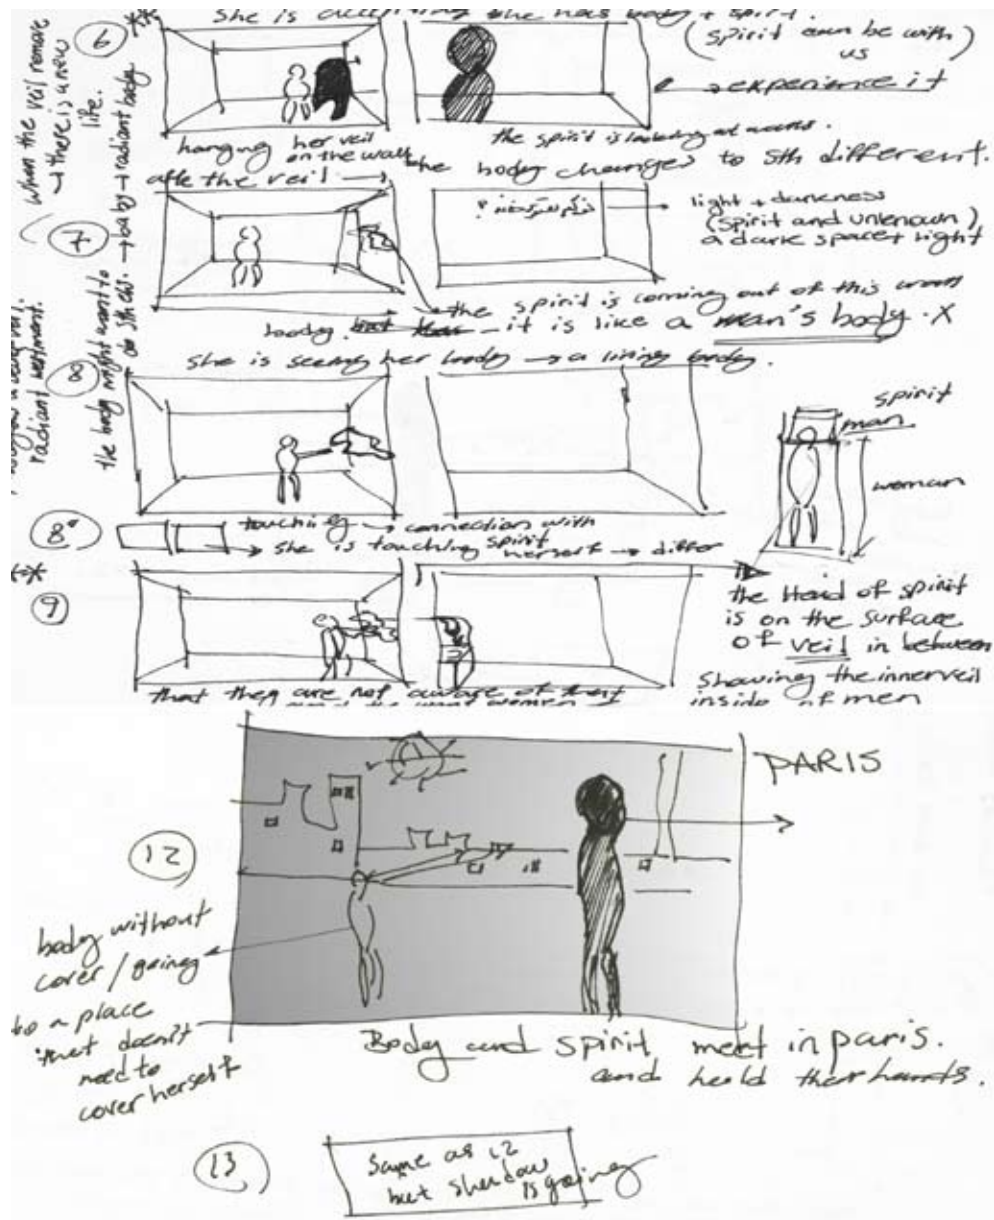 She is
she has body + spirit.
6
**
(spirit can be with us)
→ experience it
when the veil remove
→ there is a new
life.
hanging her veil
on the wall
the spirit is looking at
the body changes to sth different.
after the veil →
7
→ baby → radiant body
light + darkness
(spirit and unknown)
a dark space + light
the spirit is coming out of this
body. it is like a man's body. X
8
She is seeing her body → a living body.
radiant
the body might want to
do sth else.
spirit
man
woman
8"
touching → connection with
spirit
→ she is touching herself → differ
**
9
the Head of spirit
is on the surface
of veil in between
showing the inner veil
inside of men
that they are not aware of that
PARIS
12
body without
cover / going
to a place
that doesn't
need to
cover herself
Body and spirit meet in paris.
and hold their hands.
13
Same as 12
but shadow
is going